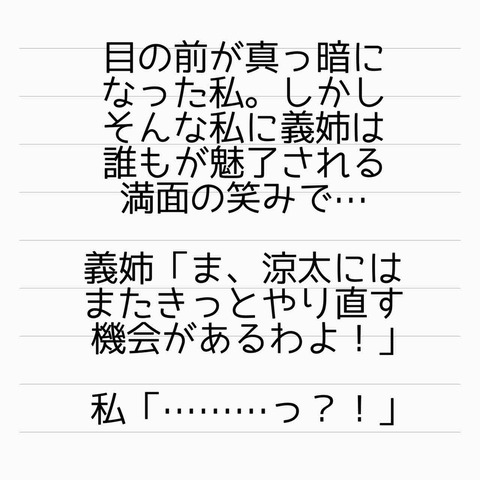 目の前が真っ暗に
なった私。しかし
そんな私に義姉は
誰もが魅了される
満面の笑みで…
義姉「ま、涼太には
またきっとやり直す
機会があるわよ！」
私「………っ？！」